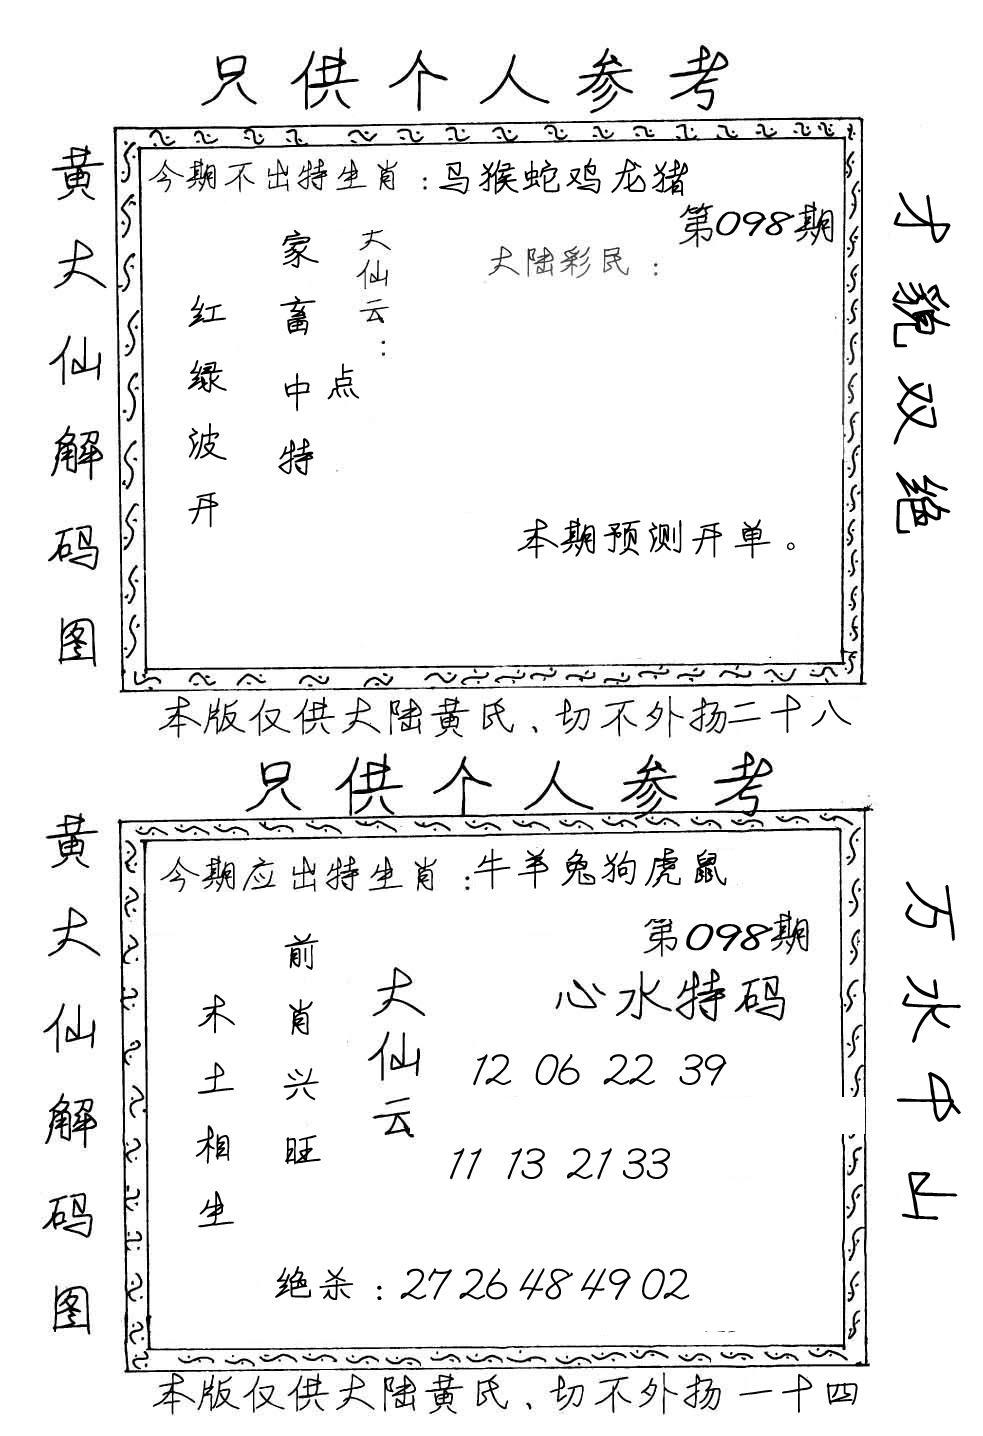 只供个人参考
黄大仙解码图
今期不出特生肖：马猴蛇鸡龙猪
第098期
大陆彩民：
大仙云：
点
家畜中特
红绿波开
本期预测开单。
才貌双绝
本版仅供大陆黄氏、切不外扬二十八
只供个人参考
黄大仙解码图
今期应出特生肖：牛羊兔狗虎鼠
第098期
心水特码
大仙云
前肖兴旺
木土相生
12 06 22 39
11 13 21 33
绝杀：27 26 48 49 02
万水中山
本版仅供大陆黄氏、切不外扬一十四